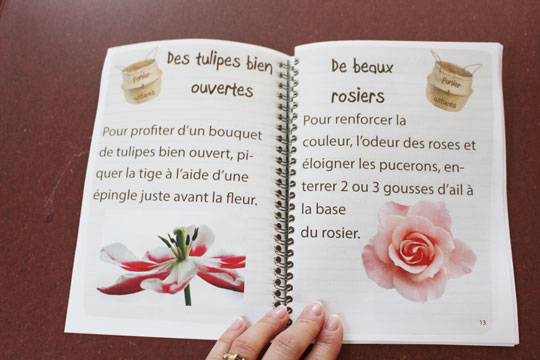 Panier
à
astuces
Des tulipes bien
ouvertes
Pour profiter d'un bouquet
de tulipes bien ouvert, pi-
quer la tige à l'aide d'une
épingle juste avant la fleur.
De beaux
rosiers
Panier
à
astuces
Pour renforcer la
couleur, l'odeur des roses et
éloigner les pucerons, en-
terrer 2 ou 3 gousses d'ail à
la base
du rosier.
13